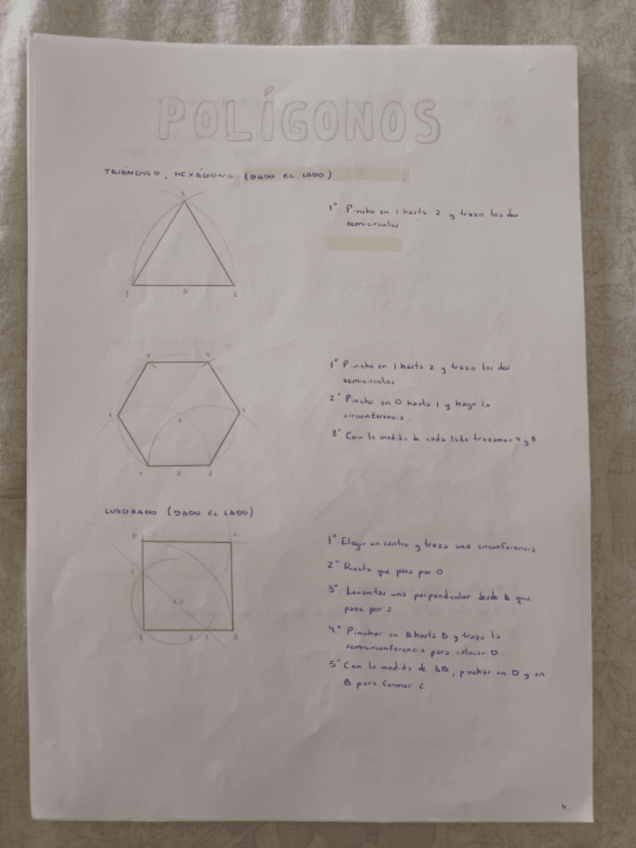 POLÍGONOS
TRIÁNGULO, HEXÁGONO (DADO EL LADO)
1º Pincho en 1 hasta 2 y trazo los dos
semicírculos.
1º Pincho en 1 hasta 2 y trazo los dos
semicírculos
2º Pincho en 0 hasta 1 y hago la
circunferencia.
3º Con la medida de cada lado trazamos 4 y
CUADRADO (DADO EL LADO)
1º Elegir un centro y trazo una circunferencia
2º Recta que pase por O
3º Levantar una perpendicular desde A que
pase por 2
4º Pinchar en A hasta B y trazo la
semicircunferencia para colocar D
5º Con la medida de AB, pinchar en D y en
B para formar C.
4